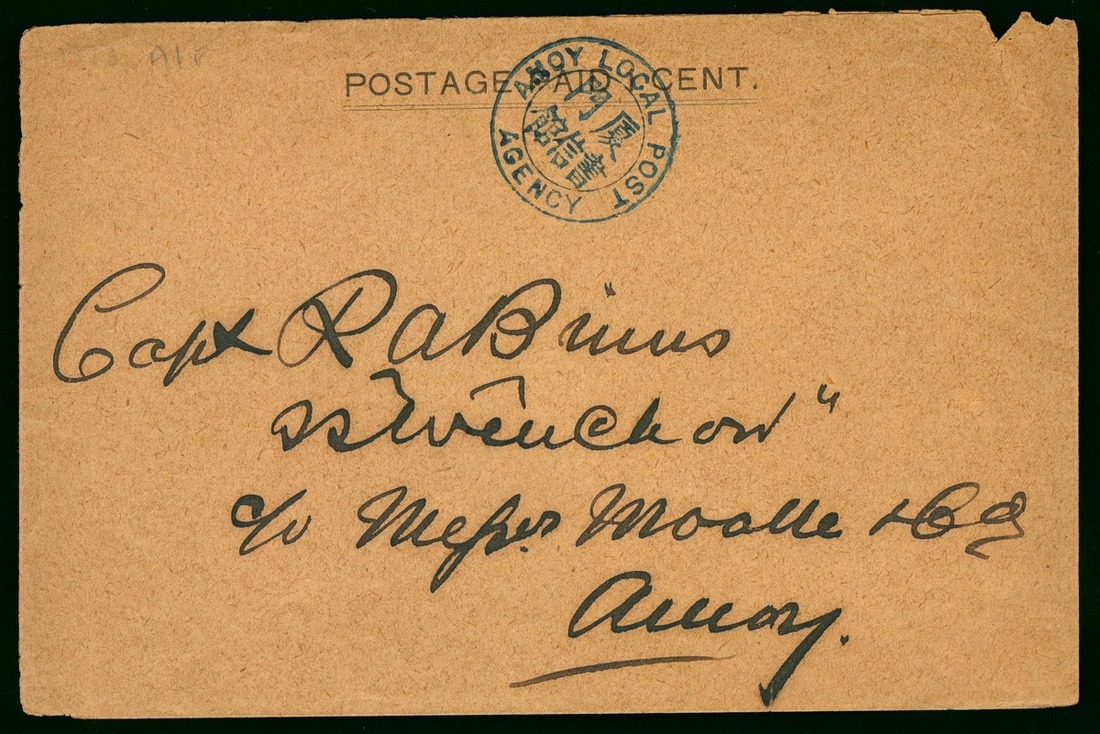 POSTAGE PAID 1 CENT.
AMOY LOCAL POST
AGENCY
廈門
書信館
Capt R A Binns
SS "Wenchow"
c/o Messrs. Moalle & Co
Amoy.